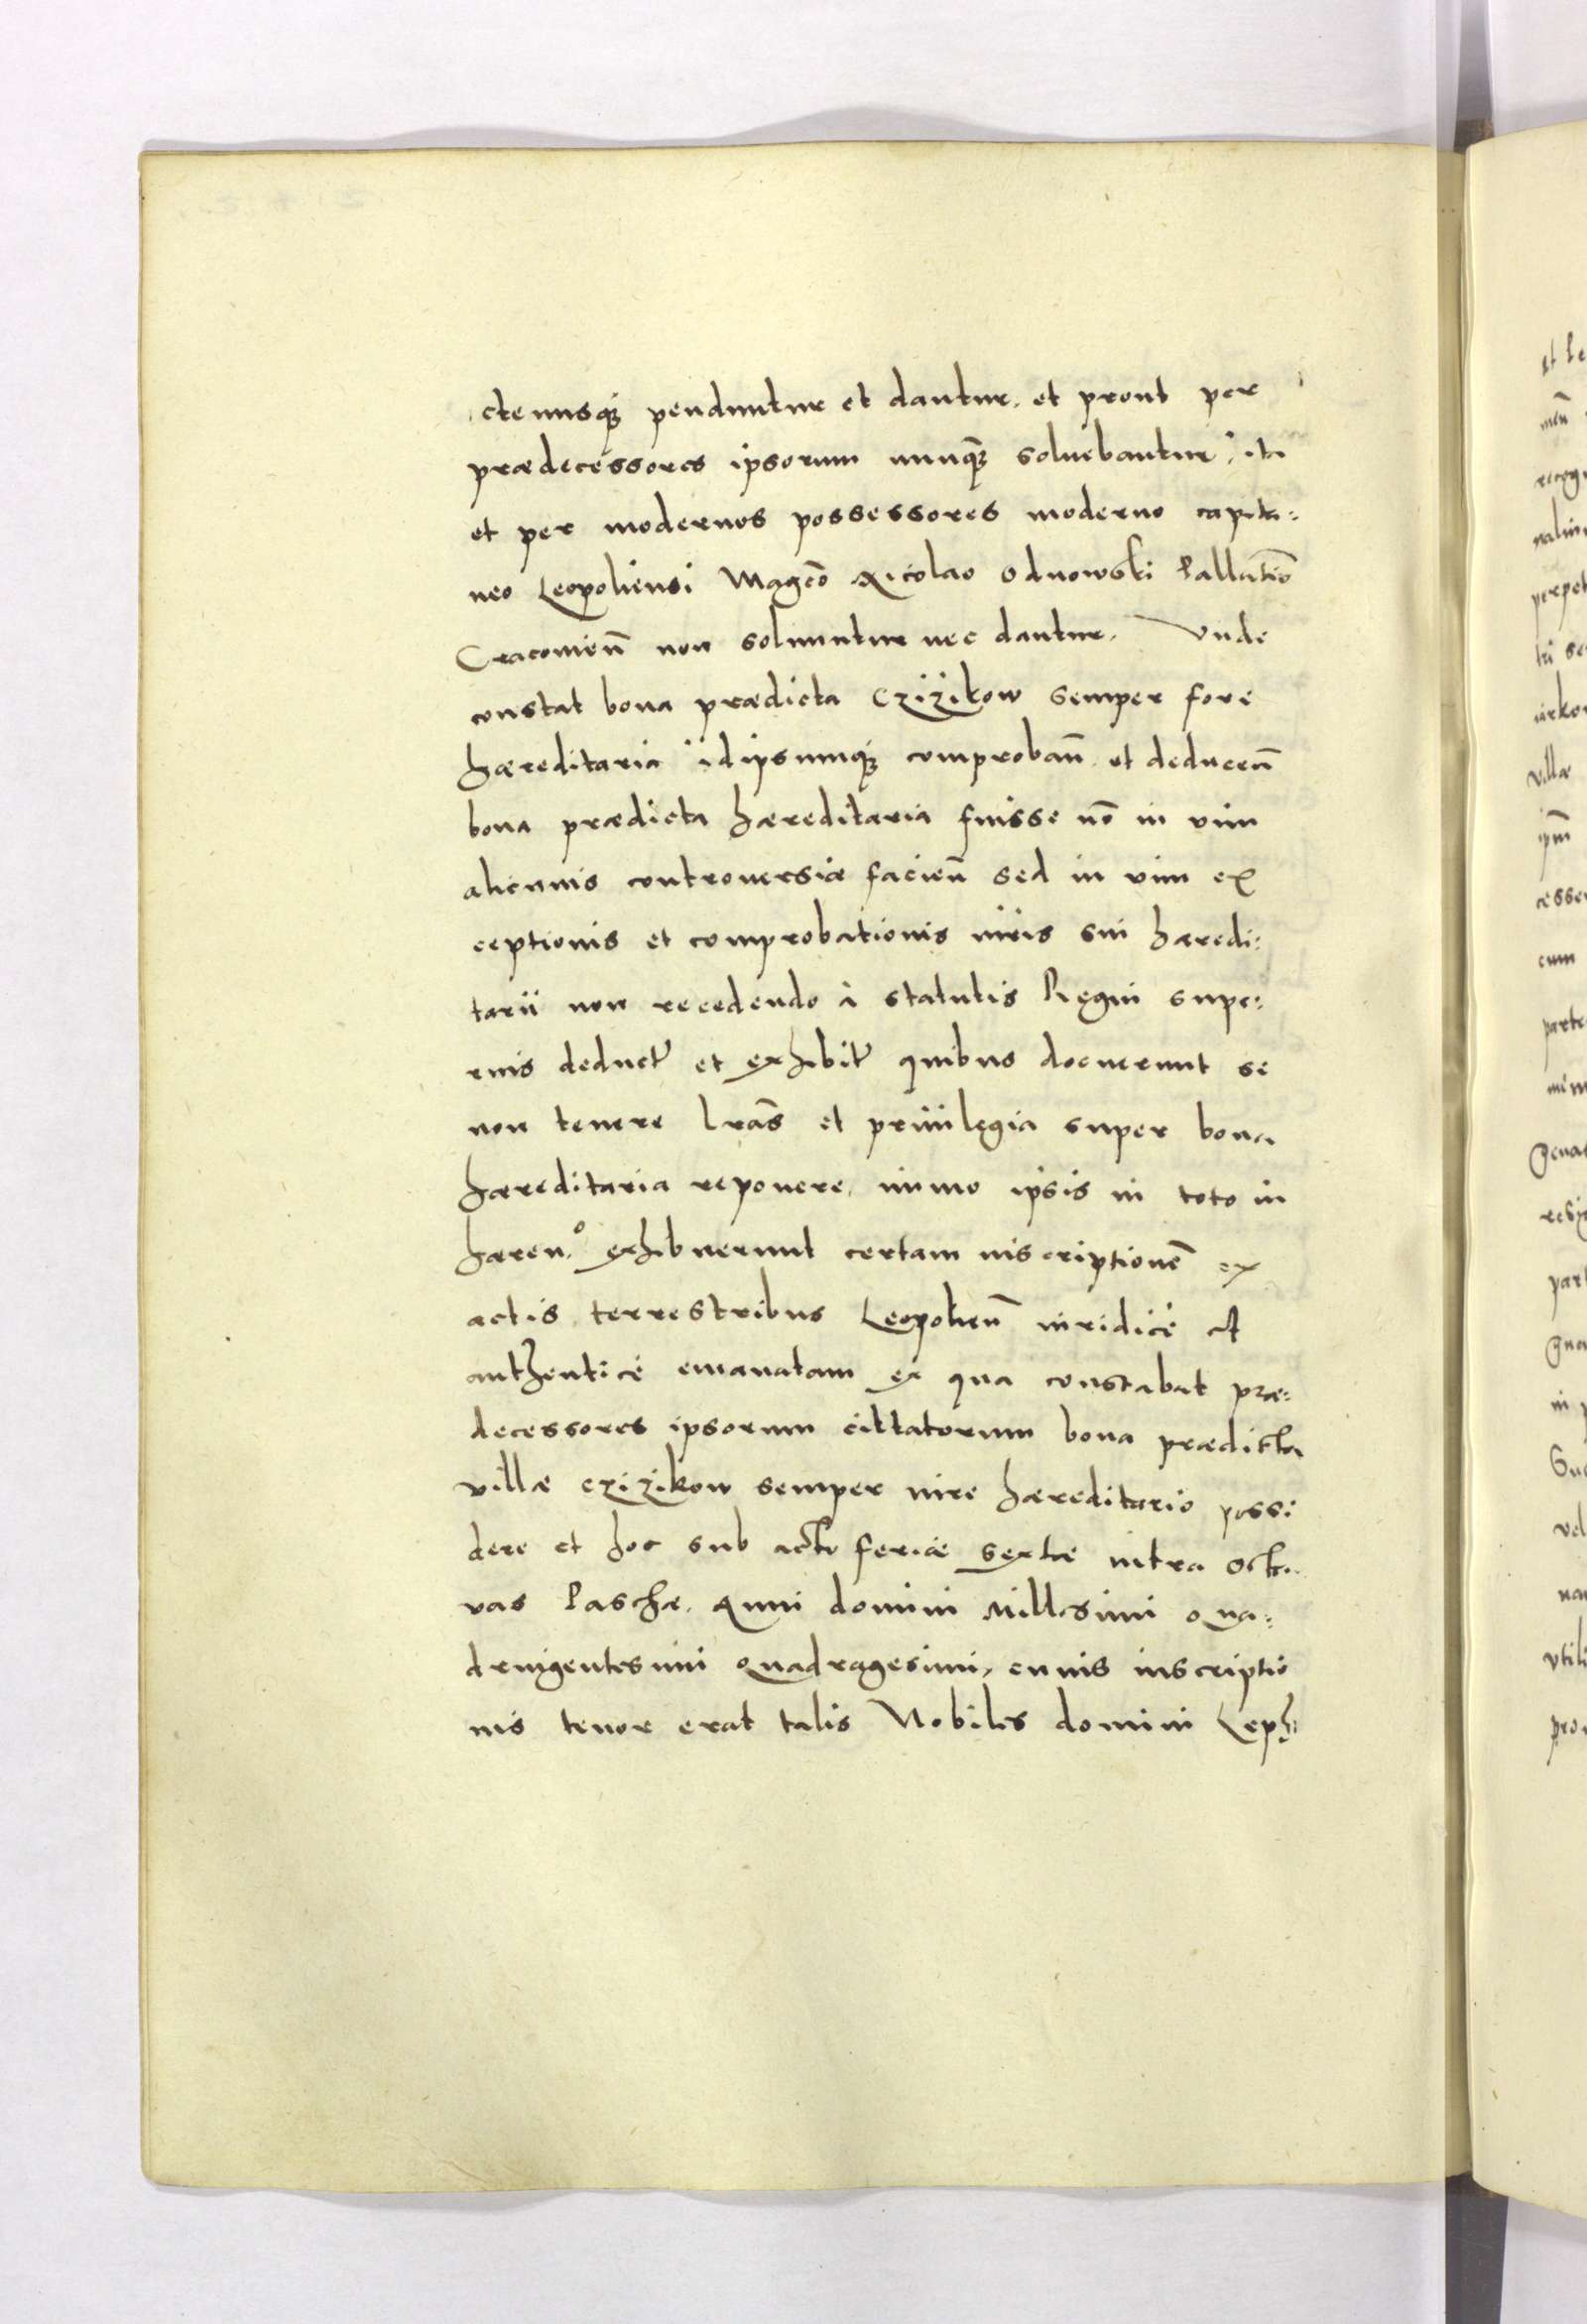 ctenusq3 penduntur et dantur. et prout per
prædecessores ipsorum nunq̃3 soluebantur, ita
et per modernos possessores moderno capita:
neo Leopoliensi Magc̃o Nicolao Odnowski Pallatiñ
Cracouieñ non soluuntur nec dantur. Vnde
constat bona prædicta Czizikow semper fore
hæreditaria idipsumq3 comprobañ et deduceñ
bona prædicta hæreditaria fuisse nõ in vim
alicuuis controuersiæ facieñ sed in vim ex
ceptionis et comprobationis iuris sui hæredi:
tarii non recedendo à statutis Regni supe:
rius deduct̃ et exhibit̃ quibus docuerunt se
non tenere lrãs et priuilegia super bona
hæreditaria reponere, immo ipsis in toto in
hæren.º exhibuerunt certam inscriptionẽ ex
actis terrestribus Leopolieñ iuridicè et
authenticè emanatam ex qua constabat præ:
decessores ipsorum cittatorum bona prædicta
villæ Czizikow semper iure hæreditario possi
dere et hoc sub acto feriæ sextæ intra Octa
uas Paschæ. Anni domini Millesimi Qua:
dringentesimi Quadragesimi, cuuis inscriptio
nis tenor erat talis Nobiles domini